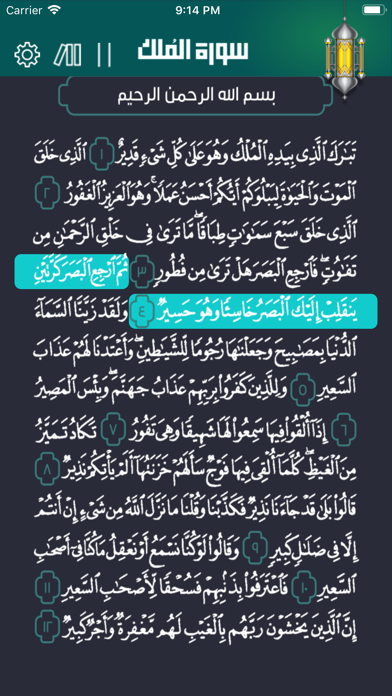 Carrier 9:14 PM
سورة الملك
بسم الله الرحمن الرحيم
تَبَٰرَكَ ٱلَّذِى بِيَدِهِ ٱلْمُلْكُ وَهُوَ عَلَىٰ كُلِّ شَىْءٍ قَدِيرٌ ١ ٱلَّذِى خَلَقَ
ٱلْمَوْتَ وَٱلْحَيَوٰةَ لِيَبْلُوَكُمْ أَيُّكُمْ أَحْسَنُ عَمَلًا ۚ وَهُوَ ٱلْعَزِيزُ ٱلْغَفُورُ ٢
ٱلَّذِى خَلَقَ سَبْعَ سَمَٰوَٰتٍ طِبَاقًا ۖ مَّا تَرَىٰ فِى خَلْقِ ٱلرَّحْمَٰنِ مِن
تَفَٰوُتٍ ۖ فَٱرْجِعِ ٱلْبَصَرَ هَلْ تَرَىٰ مِن فُطُورٍ ٣ ثُمَّ ٱرْجِعِ ٱلْبَصَرَ كَرَّتَيْنِ
يَنقَلِبْ إِلَيْكَ ٱلْبَصَرُ خَاسِئًا وَهُوَ حَسِيرٌ ٤ وَلَقَدْ زَيَّنَّا ٱلسَّمَآءَ
ٱلدُّنْيَا بِمَصَٰبِيحَ وَجَعَلْنَٰهَا رُجُومًا لِّلشَّيَٰطِينِ ۖ وَأَعْتَدْنَا لَهُمْ عَذَابَ
ٱلسَّعِيرِ ٥ وَلِلَّذِينَ كَفَرُوا۟ بِرَبِّهِمْ عَذَابُ جَهَنَّمَ ۖ وَبِئْسَ ٱلْمَصِيرُ
٦ إِذَآ أُلْقُوا۟ فِيهَا سَمِعُوا۟ لَهَا شَهِيقًا وَهِىَ تَفُورُ ٧ تَكَادُ تَمَيَّزُ
مِنَ ٱلْغَيْظِ ۖ كُلَّمَآ أُلْقِىَ فِيهَا فَوْجٌ سَأَلَهُمْ خَزَنَتُهَآ أَلَمْ يَأْتِكُمْ نَذِيرٌ ٨
قَالُوا۟ بَلَىٰ قَدْ جَآءَنَا نَذِيرٌ فَكَذَّبْنَا وَقُلْنَا مَا نَزَّلَ ٱللَّهُ مِن شَىْءٍ إِنْ أَنتُمْ
إِلَّا فِى ضَلَٰلٍ كَبِيرٍ ٩ وَقَالُوا۟ لَوْ كُنَّا نَسْمَعُ أَوْ نَعْقِلُ مَا كُنَّا فِىٓ أَصْحَٰبِ
ٱلسَّعِيرِ ١٠ فَٱعْتَرَفُوا۟ بِذَنۢبِهِمْ فَسُحْقًا لِّأَصْحَٰبِ ٱلسَّعِيرِ ١١
إِنَّ ٱلَّذِينَ يَخْشَوْنَ رَبَّهُم بِٱلْغَيْبِ لَهُم مَّغْفِرَةٌ وَأَجْرٌ كَبِيرٌ ١٢